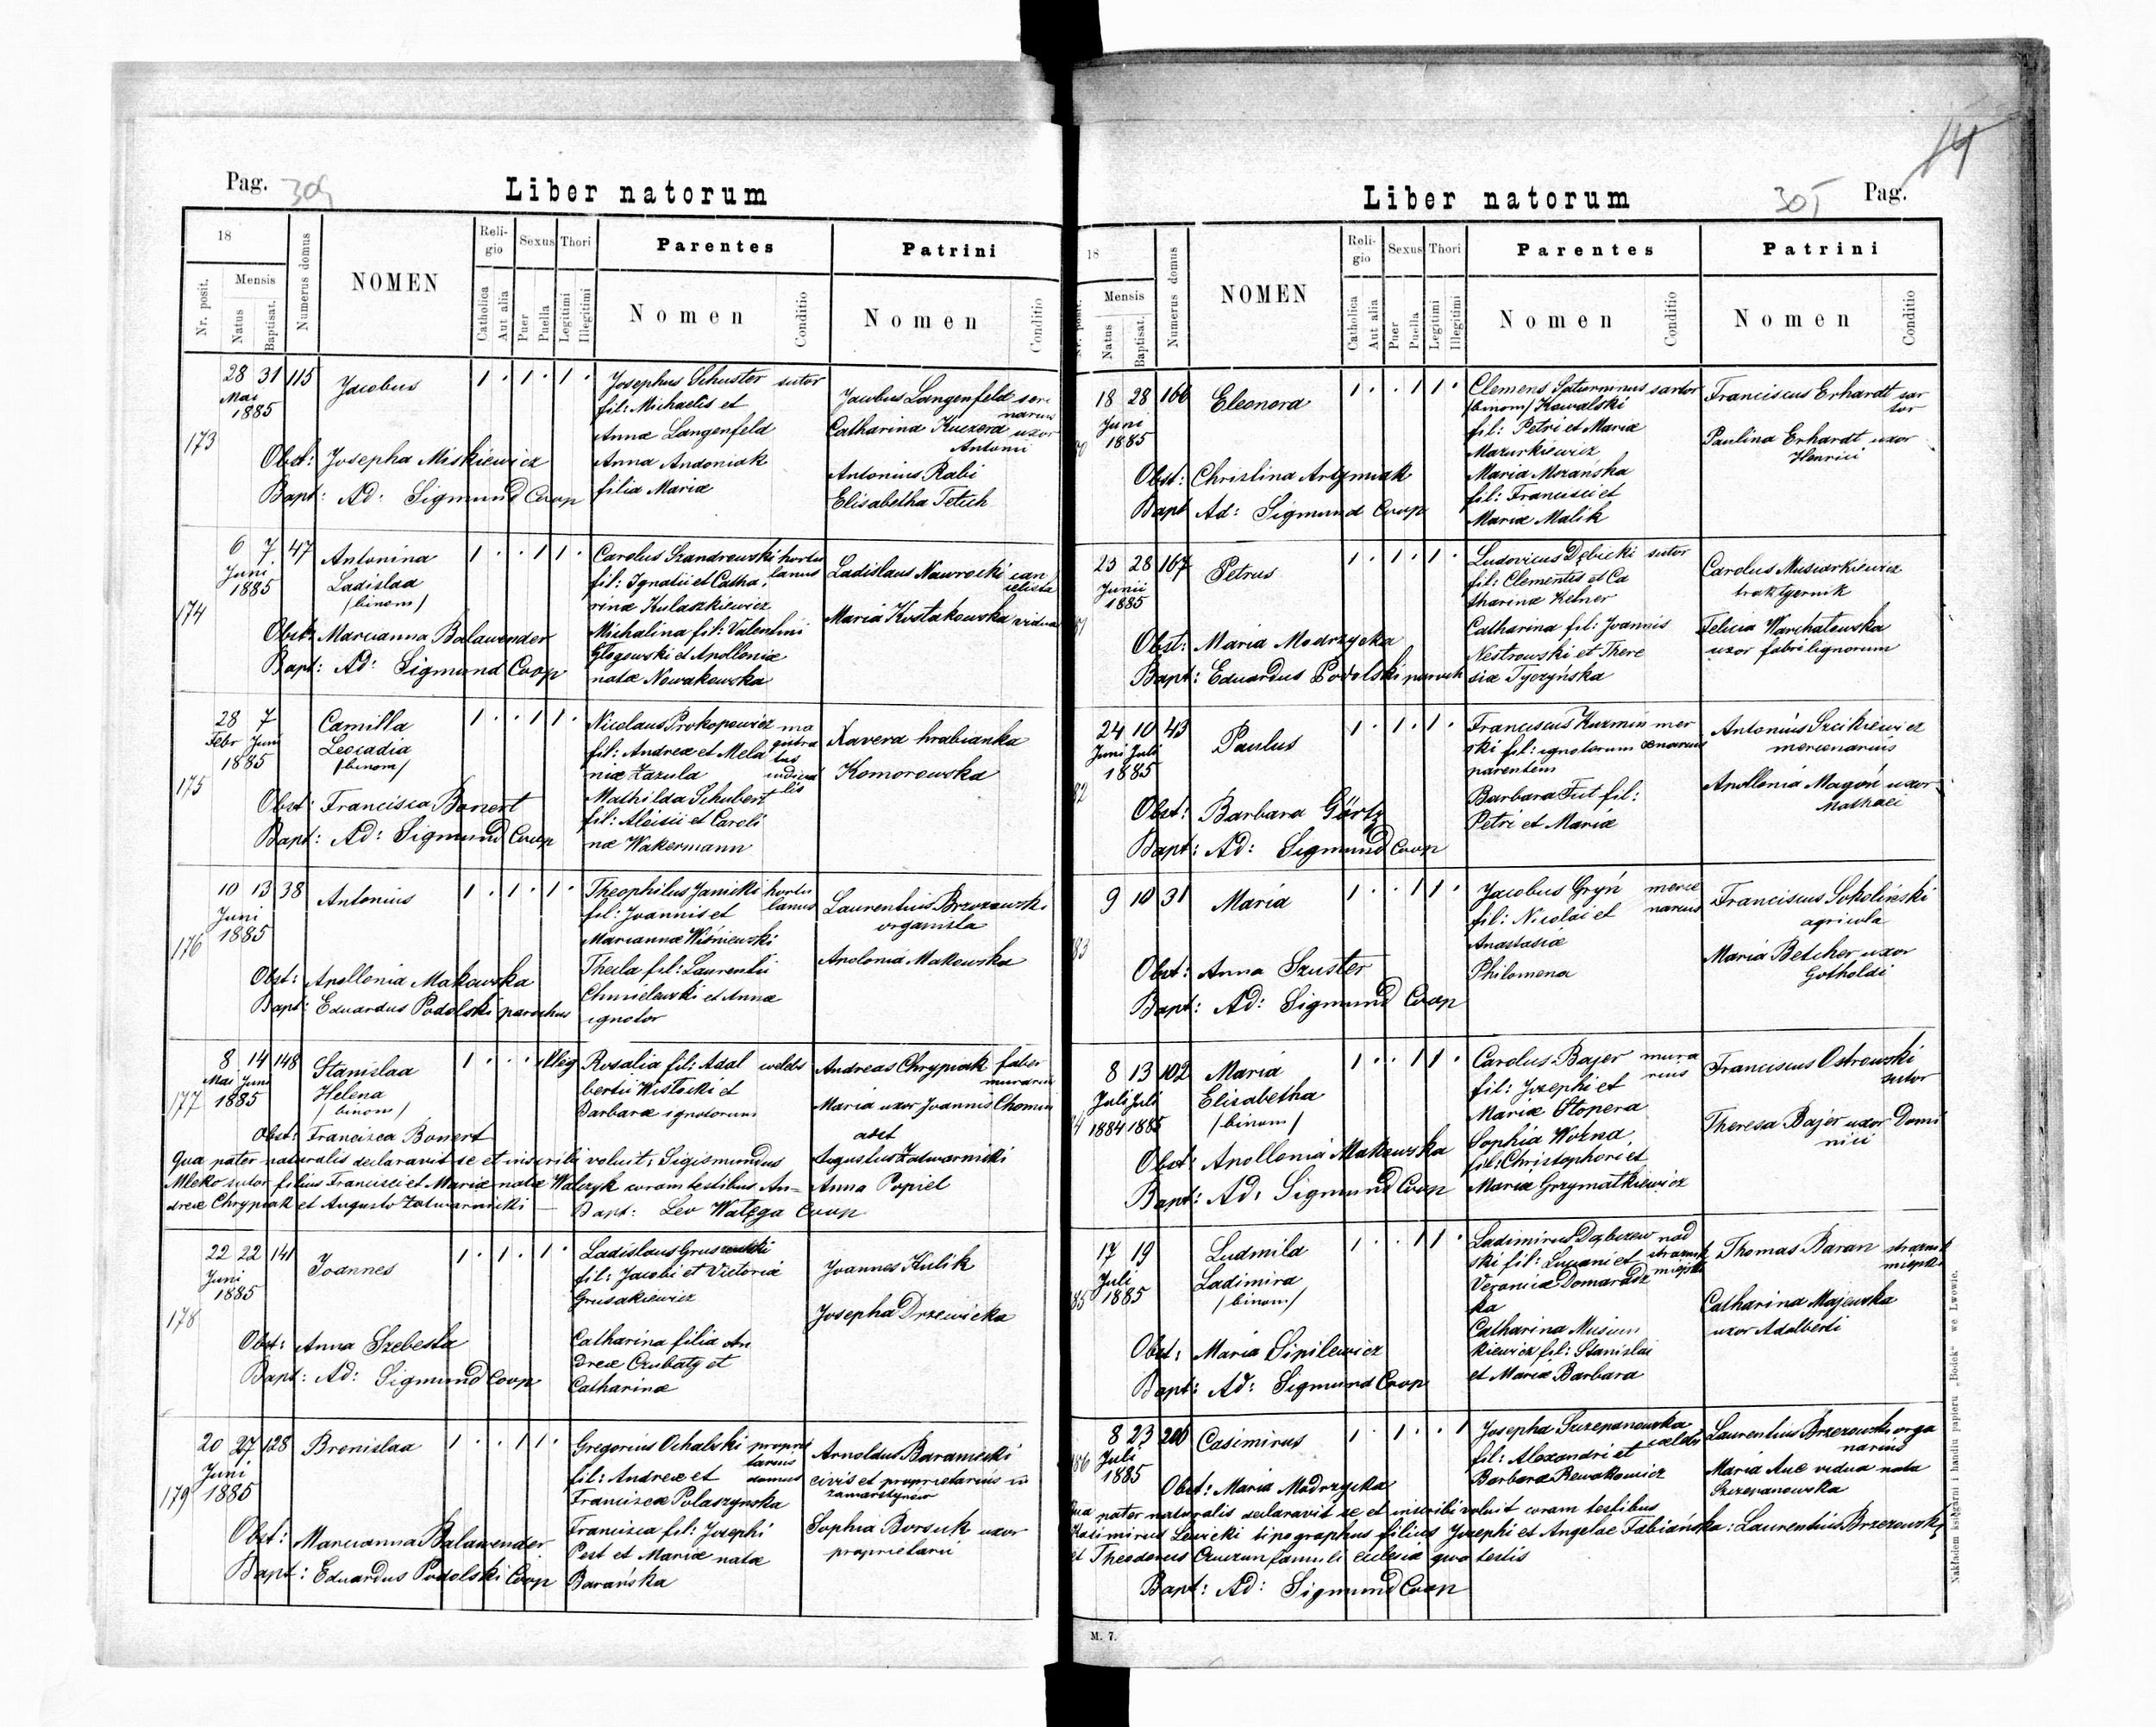 Pag. 304
Liber natorum
18
Mensis
Nr. posit.
Natus
Baptisat.
Numerus domus
NOMEN
Reli-
gio
Sexus
Thori
Catholica
Aut alia
Puer
Puella
Legitimi
Illegitimi
Parentes
Nomen
Conditio
Patrini
Nomen
Conditio
173
28 31 115
Mai
1885
Jacobus
1 . 1 . 1 .
Josephus Schuster sutor
fil: Michaelis et
Annæ Langenfeld
Anna Andoniak
filia Mariæ
Jacobus Langenfeld
Catharina Kuczera uxor
Antonii
Antonius Rabi
Elisabetha Tetich
Obst: Josepha Miskiewicz
Bapt: Ad: Sigmund Coop
174
6 7 47
Juni
1885
Antonina
Ladislaa
/binom/
1 . . 1 1 .
Carolus Szandrowski hortu
lanus
fil: Ignatii et Catha
rinæ Kulaszkiewicz
Michalina fil: Valentini
Głogowski et Apolloniæ
natæ Nowakowska
Ladislaus Nawrocki can
celista
Maria Kostakowska vidua
Obst: Marcianna Balawender
Bapt: Ad: Sigmund Coop
175
28 7
Febr Juni
1885
Camilla
Leocadia
/binom/
1 . . 1 1 .
Nicolaus Prokopowicz ma
gistra
tus
fil: Andreæ et Mela
niæ Zazula
Mathilda Schubert
fil: Aloisii et Caroli
næ Wakermann
Xavera hrabianka
Komorowska
Obst: Francisca Bonert
Bapt: Ad: Sigmund Coop
176
10 13 38
Juni
1885
Antonius
1 . 1 . 1 .
Theophilus Janicki hortu
lanus
fil: Joannis et
Mariannæ Wiśniewski
Thecla fil: Laurentii
Chmielewski et Annæ
ignotor
Laurentius Brzozowski
organista
Apolonia Makowska
Obst: Apollonia Makowska
Bapt: Eduardus Podolski parochus
177
8 14 148
Mai Juni
1885
Stanislaa
Helena
/binom/
1 . . . Illeg
Rosalia fil: Adal
bertii Wisłocki et
Barbaræ ignotorum
Andreas Chrypiak faber
murarius
Maria uxor Joannis Chomin
adst
Augustus Zatwarnicki
Anna Popiel
Obst: Francisca Bonert
Qua pater naturalis declaravit se et inscribi voluit: Sigismundus
Mleko sutor filius Francisci et Mariæ natæ Walczyk coram testibus An-
dreæ Chrypiak et Augusto Zatwarnicki —
Bapt: Leo Watęga Coop
178
22 22 141
Juni
1885
Joannes
1 . 1 . 1 .
Ladislaus
fil: Jacobi et Victoria
Grusakiewicz
Catharina filia An
dreæ Czubaty et
Catharinæ
Joannes Kulik
Josepha Drzewicka
Obst: Anna Szebesta
Bapt: Ad: Sigmund Coop
179
20 27 128
Juni
1885
Bronislaa
1 . . 1 1 .
Gregorius Ochalski proprie
tarius
domus
fil: Andreæ et
Franciscæ Polaszynska
Francisca fil: Josephi
Pest et Mariæ natæ
Barańska
Arnoldus Baraniecki
civis et proprietarius in
Zamarstynów
Sophia Borsuk uxor
proprietarii
Obst: Marcianna Balawender
Bapt: Eduardus Podolski Coop
14
Liber natorum
305 Pag.
18
Mensis
Nr. posit.
Natus
Baptisat.
Numerus domus
NOMEN
Reli-
gio
Sexus
Thori
Catholica
Aut alia
Puer
Puella
Legitimi
Illegitimi
Parentes
Nomen
Conditio
Patrini
Nomen
Conditio
18 28 166
Juni
1885
Eleonora
1 . . 1 1 .
Clemens Saturninus sartor
/binom/ Kowalski
fil: Petri et Mariæ
Mazurkiewicz
Maria Mozanska
fil: Francisci et
Mariæ Malik
Franciscus Erhardt sar
tor
Paulina Erhardt uxor
Henrici
Obst: Christina Artymiak
Bapt Ad: Sigmund Coop
25 28 167
Junii
1885
Petrus
1 . 1 . 1 .
Ludovicus Dębicki sutor
fil: Clementis et Ca
tharinæ Kelner
Catharina fil: Joannis
Nestrowski et There
siæ Tyczyńska
Carolus Musiarkiewicz
traktyernik
Felicia Warchatowska
uxor fabri lignorum
Obst: Maria Modrzycka
Bapt: Eduardus Podolski paroch
24 10 43
Juni Juli
1885
Paulus
1 . 1 . 1 .
Franciscus Kuzmin mer
cenarius
ski fil: ignotorum
parentem
Barbara Fut fil:
Petri et Mariæ
Antonius Szcikiewicz
mercenarius
Apollonia Magoń uxor
Mathaei
Obst: Barbara Görtz
Bapt: Ad: Sigmund Coop
9 10 31
Maria
1 . . 1 1 .
Jacobus Gryń merce
narius
fil: Nicolai et
Anastasiæ
Philomena
Franciscus Sokoliński
agricola
Maria Betcher uxor
Gotholdi
Obst: Anna Szuster
Bapt: Ad: Sigmund Coop
8 13 102
Juli Juli
1884 1885
Maria
Elisabetha
/binom/
1 . . 1 1 .
Carolus Bajer mura
rius
fil: Josephi et
Mariæ Stopera
Sophia Wozna
fil: Christophori et
Mariæ Grzymatkiewicz
Franciscus Ostrowski
sutor
Theresa Bajer uxor Domi
nici
Obst: Apollonia Makowska
Bapt: Ad: Sigmund Coop
17 19
Juli
1885
Ludmila
Ladimira
/binom/
1 . . 1 1 .
Ladimirus Dąbczew nad
strażnik
miejski
ski fil: Luciani et
Veronicæ Domaradz
ka
Catharina Musium
kiewicz fil: Stanislai
et Mariæ Barbara
Thomas Baran strażnik
miejski
Catharina Majewska
uxor Adalberti
Obst: Maria Sipilewicz
Bapt: Ad: Sigmund Coop
8 23 206
Juli
1885
Casimirus
1 . 1 . . 1
Josepha Szczepanowska
cælebs
fil: Alexandri et
Barbaræ Rewakowicz
Laurentius Brzezowski orga
narius
Maria Auc vidua nata
Szczepanowska
Obst: Maria Modrzycka
Qua pater naturalis declaravit se et inscribi voluit coram testibus
Kasimirus Lewicki tipographus filius Josephi et Angelae Fabiańska: Laurentius Brzezowski
et Theodorus Czuczun famuli eclesiæ qua testis
Bapt: Ad: Sigmund Coop
M. 7.
Nakładem księgarni i handlu papieru „Bodek" we Lwowie.